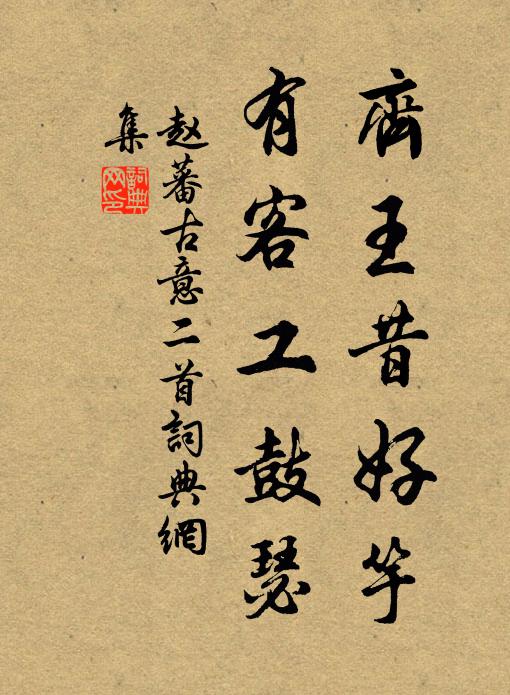 齊王昔好竽
有客工鼓瑟
赵蕃古意二首詞典網
集
詞典
网印